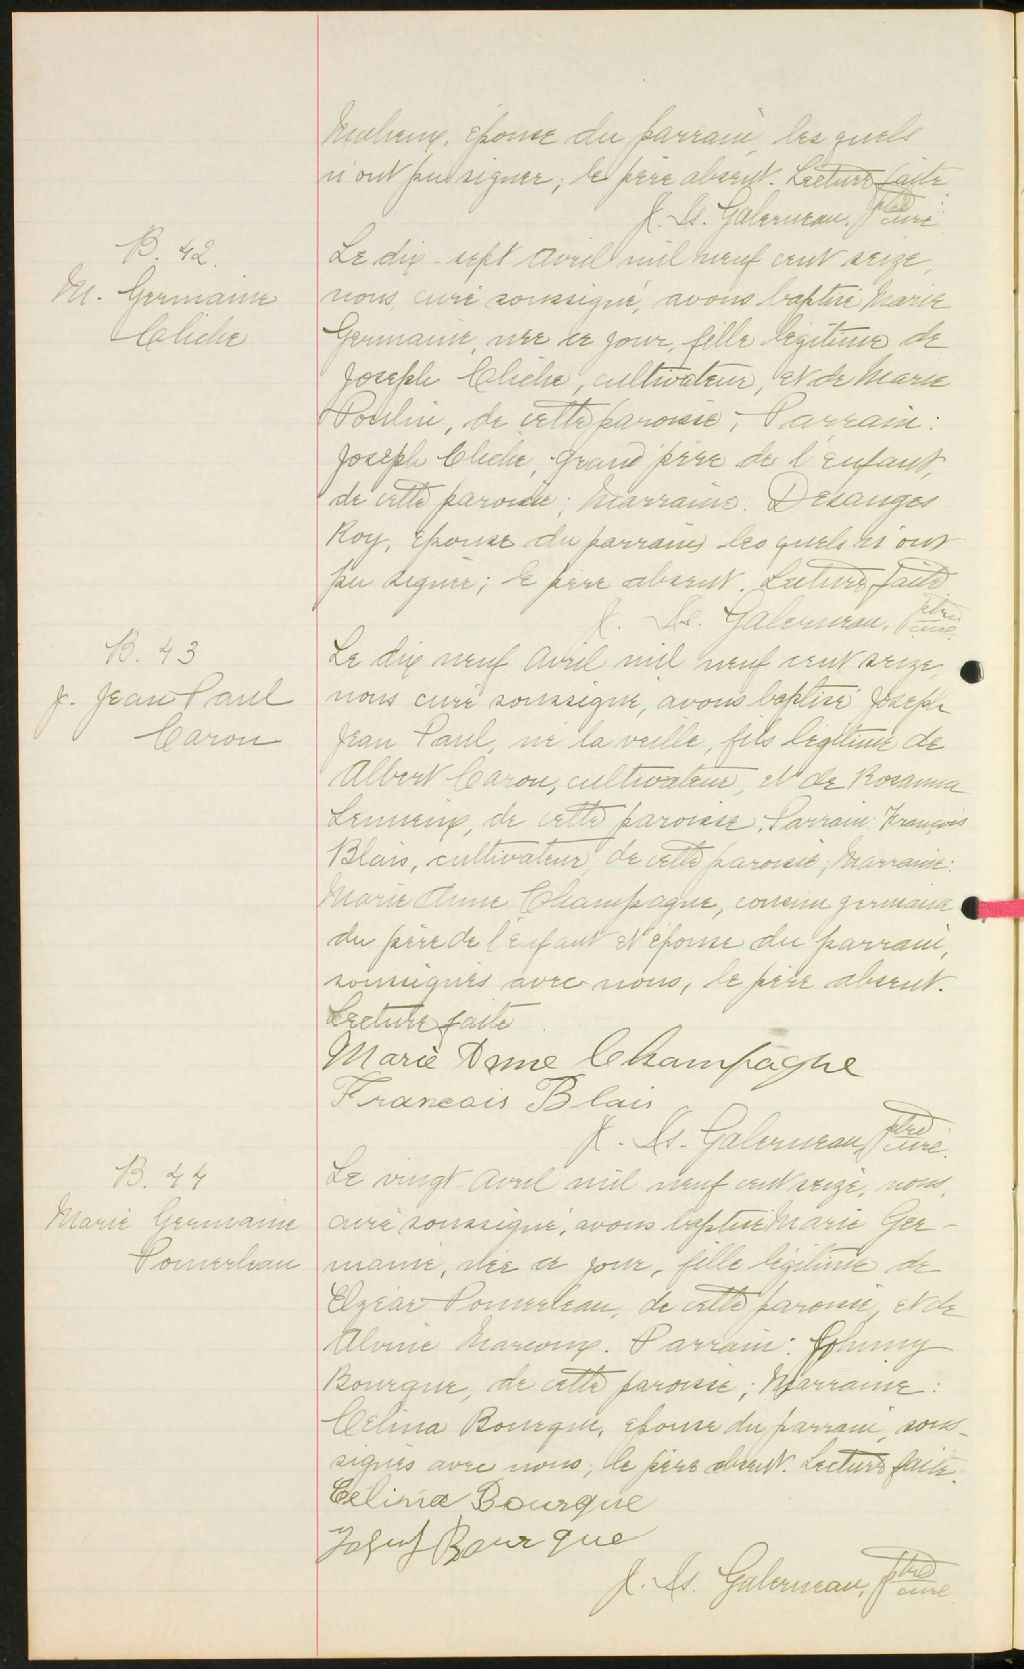 Maheux, épouse du parrain, les quels
n'ont pu signer; le père absent. Lecture faite.
J. Ls. Galerneau, ptre curé
B. 42.
M. Germaine
Cliche
Le dix-sept Avril mil neuf cent seize,
nous, curé soussigné, avons baptisé Marie
Germaine, née ce jour, fille légitime de
Joseph Cliche, cultivateur, et de Marie
Poulin, de cette paroisse; Parrain:
Joseph Cliche, grand père de l'enfant,
de cette paroisse; Marraine: Desanges
Roy, épouse du parrain, les quels n'ont
pu signer; le père absent. Lecture faite
J. Ls. Galerneau, ptre curé.
B. 43
J. Jean Paul
Caron
Le dix neuf Avril mil neuf cent seize,
nous curé soussigné, avons baptisé Joseph
Jean Paul, né la veille, fils légitime de
Albert Caron, cultivateur, et de Rosanna
Lemieux, de cette paroisse. Parrain: François
Blais, cultivateur, de cette paroisse; Marraine:
Marie Anne Champagne, cousine germaine
du père de l'enfant et épouse du parrain,
soussignés avec nous, le père absent.
Lecture faite.
Marie Anne Champagne
Francois Blais
J. Ls. Galerneau, ptre curé.
B. 44
Marie Germaine
Pomerleau
Le vingt Avril mil neuf cent seize, nous,
curé soussigné, avons baptisé Marie Ger-
maine, née ce jour, fille légitime de
Elzéar Pomerleau, de cette paroisse, et de
Alvine Marcoux. Parrain: Johnny
Bourque, de cette paroisse; Marraine:
Célina Bourque, épouse du parrain, sous-
signés avec nous; le père absent. Lecture faite.
Celina Bourque
Bourque
J. Ls. Galerneau, ptre curé